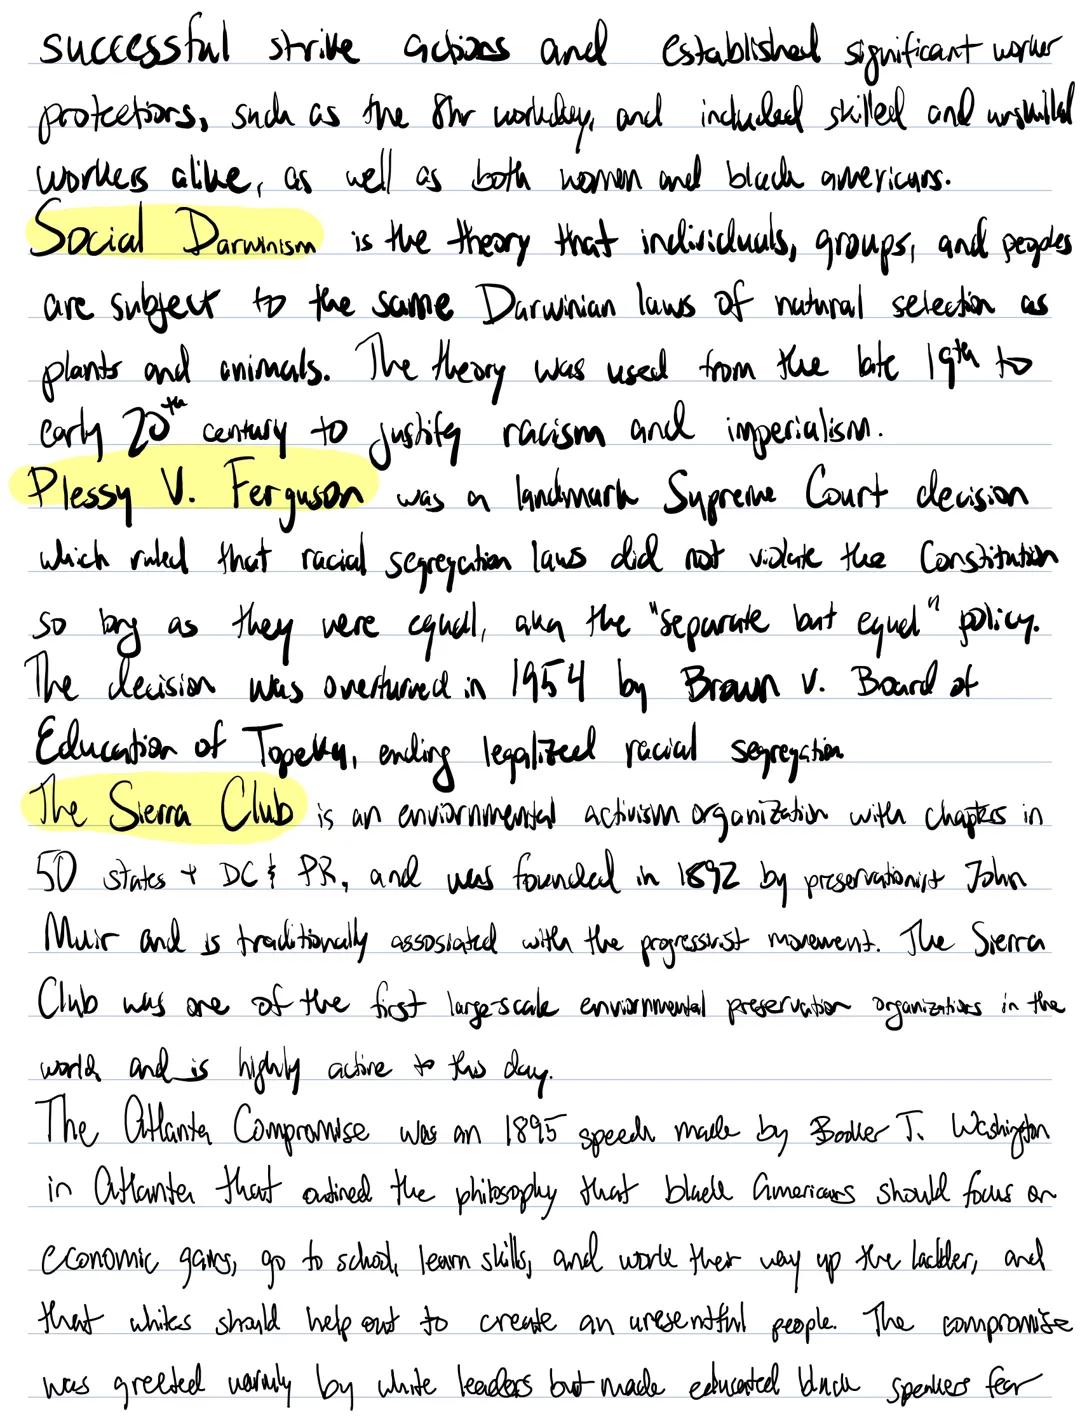 successful strike actions and established significant worker
protections, such as the 8hr workday, and included skilled and unskilled
workers alike, as well as both women and black americans.
Social Darwinism is the theory that individuals, groups, and peoples
are subject to the same Darwinian laws of natural selection as
plants and animals. The theory was used from the late 19th to
early 20th century to justify racism and imperialism.
Plessy V. Ferguson was a landmark Supreme Court decision
which ruled that racial segregation laws did not violate the Constitution
so long as they were equal, aka the "separate but equal" policy.
The decision was overturned in 1954 by Brown v. Board of
Education of Topeka, ending legalized racial segregation
The Sierra Club is an enviornmental activism organization with chapters in
50 states + DC & PR, and was founded in 1892 by preservationist John
Muir and is traditionally assosiated with the progressivist movement. The Sierra
Club was one of the first large-scale enviornmental preservation organizations in the
world and is highly active to this day.
The Atlanta Compromise was an 1895 speech made by Booker T. Washington
in Atlanta that outined the philosophy that black Americans should focus on
economic gains, go to school, learn skills, and work their way up the ladder, and
that whites should help out to create an unresentful people. The compromise
was greeted warmly by white leaders but made educated black speakers fear